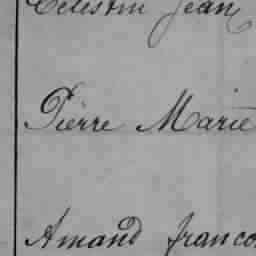 Célestin Jean
Pierre Marie
Amand franço